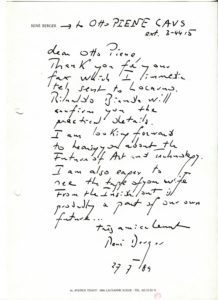 RENÉ BERGER → to Otto PIENE CAVS
ext. 3-4415
dear Otto Piene
Thank you for your
fax which I immedia
tely sent to Locarno.
Rinaldo Bianda will
confirm you the
practical details.
I am looking forward
to hearing you about the
Future of Art and technology.
I am also eager to
see the tape of your wife
From the Inside out is
probably a part of our own
future...
très amicalement
René Berger
27.7.89
LAUSANNE